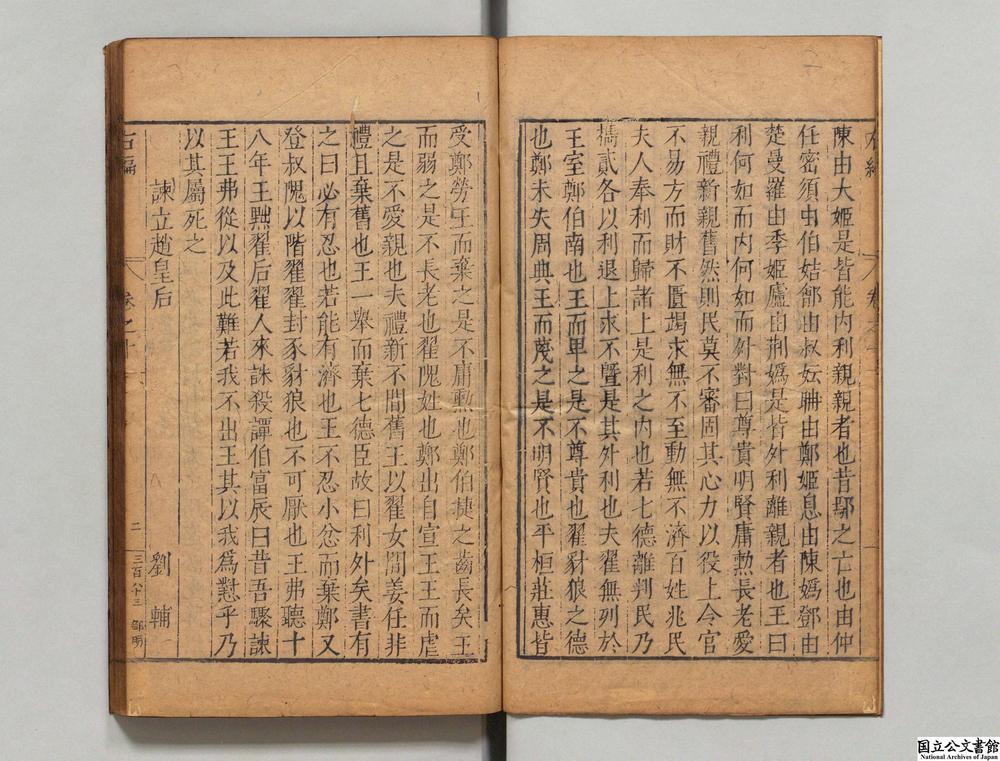 陳由大姬是皆能内利親親者也昔鄢之亡也由仲
任密須由伯姞鄶由叔妘聃由鄭姬息由陳嬀鄧由
楚曼羅由季姬廬由荆嬀是皆外利離親者也王曰
利何如而内何如而外對曰尊貴明賢庸勲長老愛
親禮新親舊然則民莫不審固其心力以役上令官
不易方而財不匱竭求無不至動無不濟百姓兆民
夫人奉利而歸諸上是利之内也若七德離判民乃
攜貳各以利退上求不曁是其外利也夫翟無列於
王室鄭伯南也王而卑之是不尊貴也翟豺狼之德
也鄭未失周典王而蔑之是不明賢也平桓莊惠皆
受鄭勞王而棄之是不庸勲也鄭伯捷之齒長矣王
而弱之是不長老也翟隗姓也鄭出自宣王王而虐
之是不愛親也夫禮新不間舊王以翟女間姜任非
禮且棄舊也王一舉而棄七德臣故曰利外矣書有
之曰必有忍也若能有濟也王不忍小忿而棄鄭又
登叔隗以階翟翟封豕豺狼也不可厭也王弗聽十
八年王黜翟后翟人來誅殺譚伯富辰曰昔吾驟諫
王王弗從以及此難若我不出王其以我爲懟乎乃
以其屬死之
諫立趙皇后 劉輔
右編 卷之十 二 三百八十三 鄒明
国立公文書館
National Archives of Japan